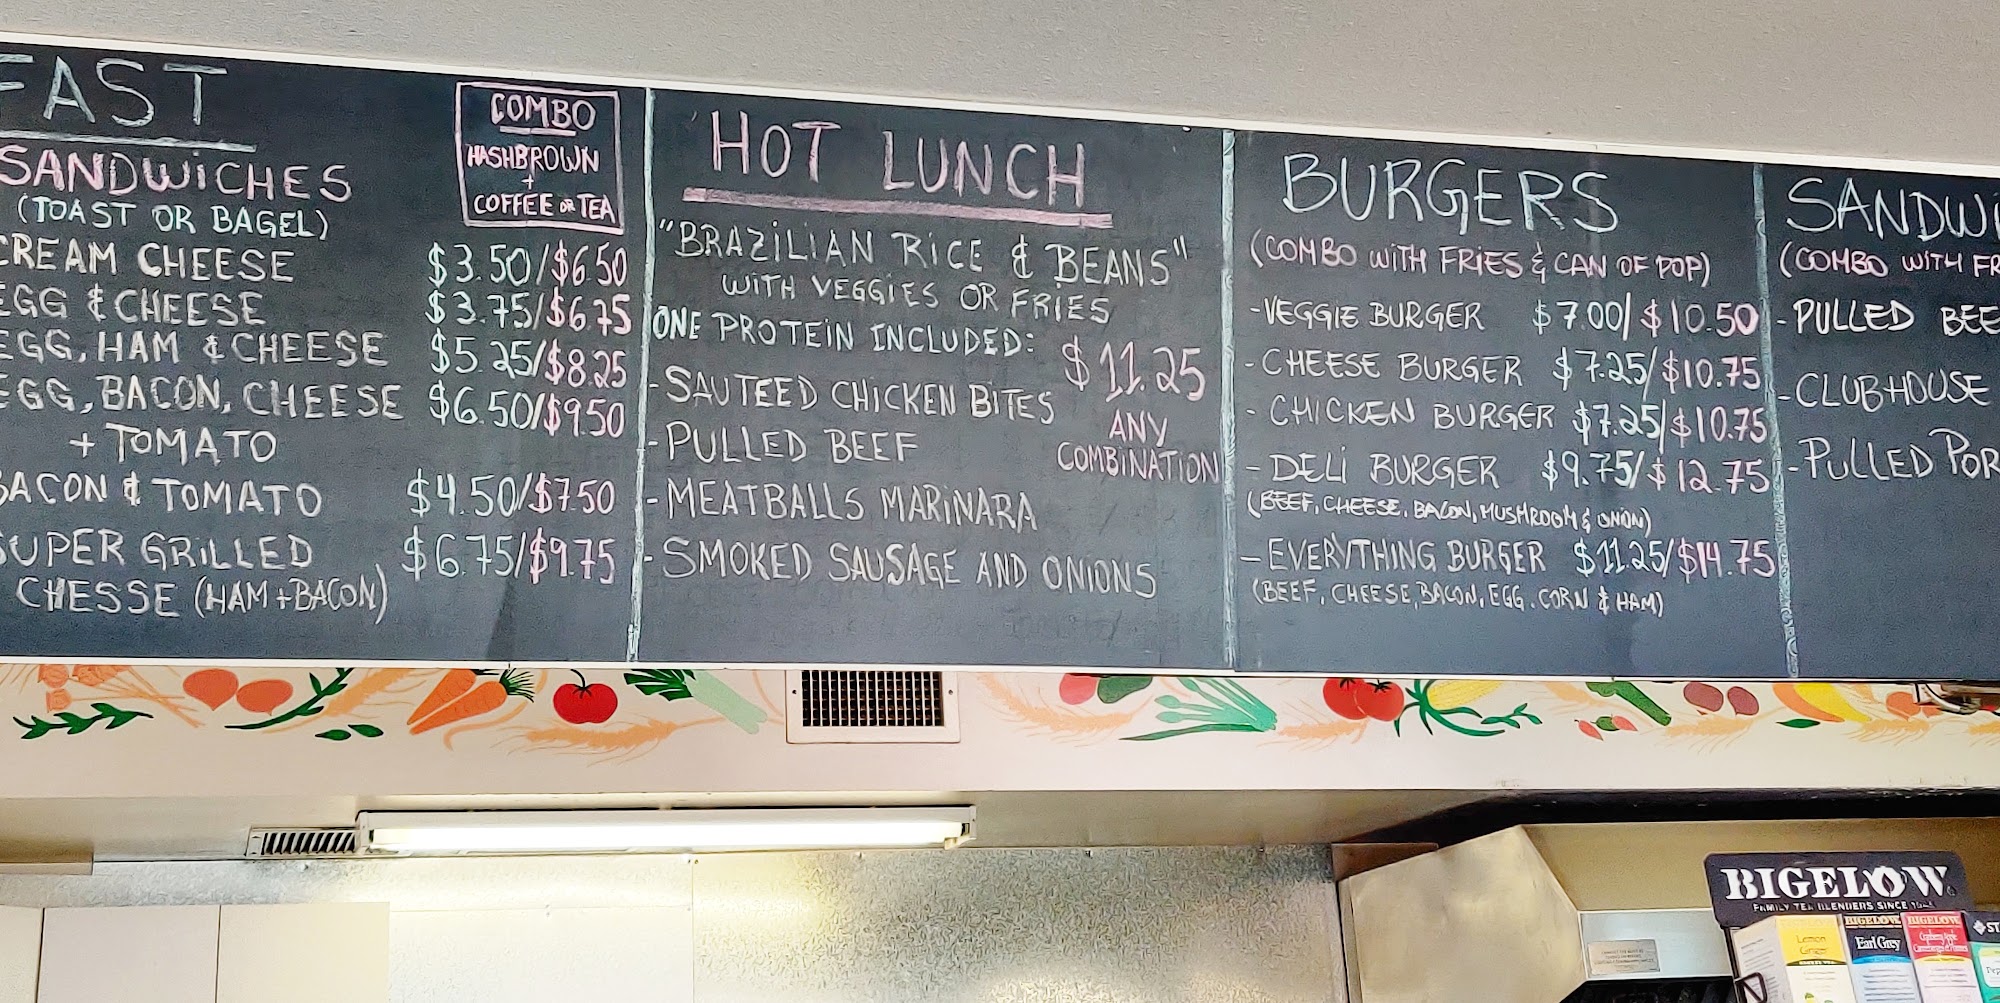 FAST
SANDWiCHES
(TOAST OR BAGEL)
CREAM CHEESE $3.50/$6.50
EGG & CHEESE $3.75/$6.75
EGG, HAM & CHEESE $5.25/$8.25
EGG, BACON, CHEESE $6.50/$9.50
+ TOMATO
BACON & TOMATO $4.50/$7.50
SUPER GRiLLED $6.75/$9.75
CHESSE (HAM+BACON)
COMBO
HASHBROWN
+
COFFEE OR TEA
HOT LUNCH
"BRAZiLIAN RiCE & BEANS"
WiTH VEGGiES OR FRiES
ONE PROTEiN INCLUDED:
$11.25
ANY
COMBiNATiON
-SAUTEED CHiCKEN BiTES
-PULLED BEEF
-MEATBALLS MARiNARA
-SMOKED SAUSAGE AND ONiONS
BURGERS
(COMBO WiTH FRiES & CAN OF POP)
-VEGGIE BURGER $7.00/$10.50
-CHEESE BURGER $7.25/$10.75
-CHICKEN BURGER $7.25/$10.75
-DELi BURGER $9.75/$12.75
(BEEF, CHEESE, BACON, MUSHROOM & ONION)
-EVERYTHING BURGER $11.25/$14.75
(BEEF, CHEESE, BACON, EGG, CORN & HAM)
SANDWi
(COMBO WiTH FR
-PULLED BEE
-CLUBHOUSE
-PULLED POR
BIGELOW
FAMILY TEA BLENDERS SINCE
Lemon
Ginger
BIGELOW
Earl Grey
BIGELOW
Cranberry Apple